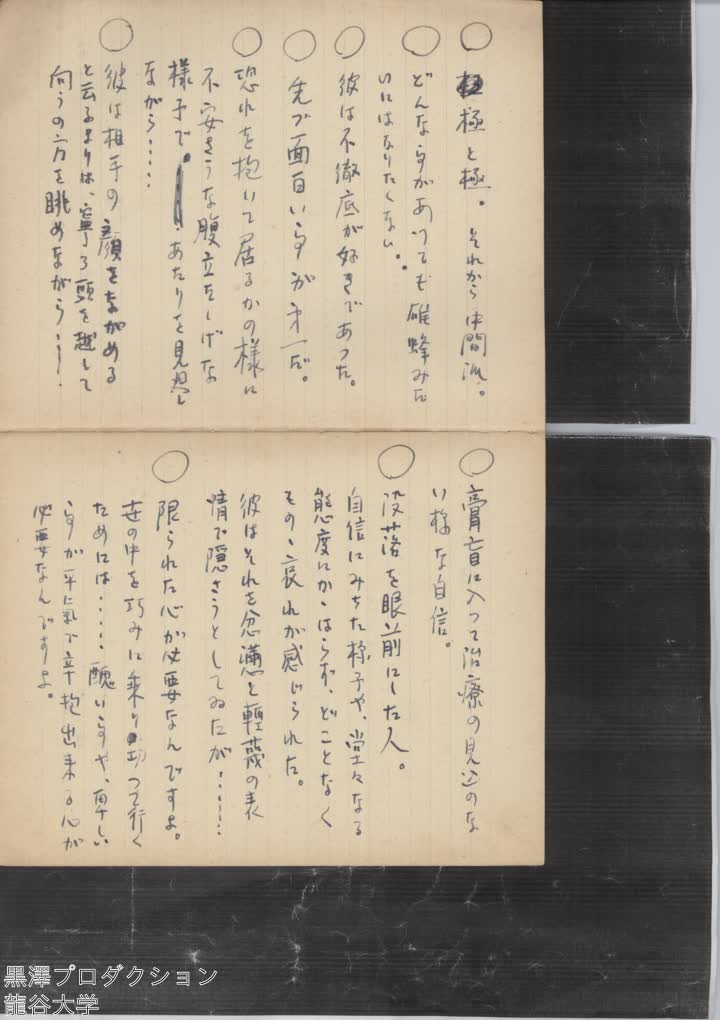 ○
極と極。それから中間派。
○
どんな事があつても雄蜂みた
いにはなりたくない。
○
彼は不徹底が好きであつた。
○
先づ面白い事が才一だ。
○
恐れを抱いて居るかの様に
不安さうな腹立たしげな
様子で、あたりを見廻し
ながら……
○
彼は相手の顔をながめる
と云ふよりは、寧ろ頭を越して
向うの方を眺めながら……
○
膏盲に入つて治療の見込のな
い様な自信。
○
没落を眼前にした人。
自信にみちた様子や、堂々なる
態度にかゝはらず、どことなく
そのゝ哀れが感じられた。
彼はそれを忿懣と軽蔑の表
情で隠さうとしてゐたが……
○
限られた心が必要なんですよ。
世の中を巧みに乗り切つて行く
ためには……醜い事や、卑しい
事が平気で辛抱出来る心が
必要なんですよ。
黒澤プロダクション
龍谷大学